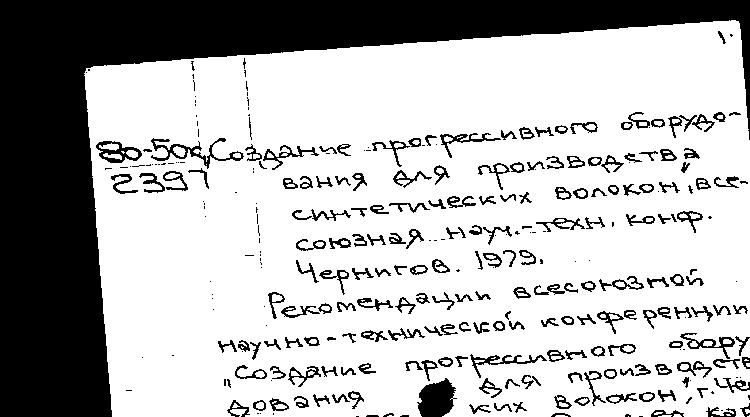 1.
80-50к „Создание прогрессивного оборудо-
2397 вания для производства
синтетических волокон", все-
союзная науч.-техн. конф.
Чернигов. 1979.
Рекомендации всесоюзной
научно-технической конференции
„Создание прогрессивного обору
дования для производств
ких волокон", г. Че